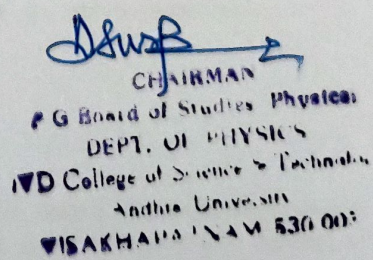 CHAIRMAN
P G Board of Studies Physical
DEPT. OF PHYSICS
VD College of Science & Technolo
Andhra University
VISAKHAPATNAM 530 003